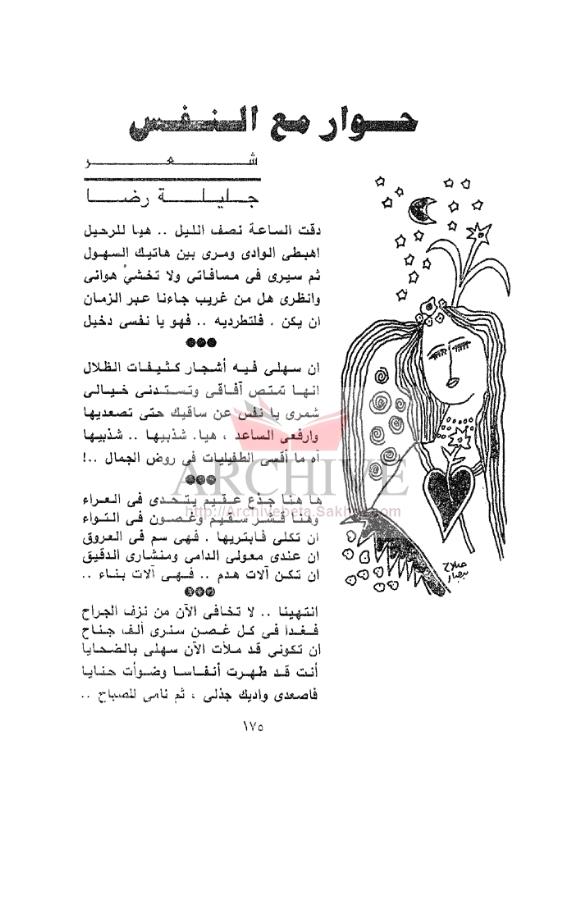 حوار مع النفس
شعر
جليلة رضا
دقت الساعة نصف الليل .. هيا للرحيل
اهبطى الوادى ومرى بين هاتيك السهول
ثم سيرى فى مسافاتى ولا تخشىْ هوانى
وانظرى هل من غريب جاءنا عبر الزمان
ان يكن . فلتطرديه .. فهو يا نفسى دخيل
●●●
ان سهلى فيه أشجار كثيفات الظلال
انها تمتص آفاقى وتستدنى خيالى
شمرى يا نفس عن ساقيك حتى تصعديها
وارفعى الساعد ، هيا. شذبيها .. شذبيها
آه ما أقسى الطفيليات فى روض الجمال ..!
●●●
ها هنا جذع عقيم يتحدى فى العراء
وهنا قشر سقيم وغصون فى التواء
ان تكلى فابتريها . فهى سم فى العروق
ان عندى معولى الدامى ومنشارى الدقيق
ان تكن آلات هدم .. فهى آلات بناء ..
●●●
انتهينا .. لا تخافى الآن من نزف الجراح
فغدا فى كل غصن سنرى ألف جناح
ان تكونى قد ملأت الآن سهلى بالضحايا
أنت قد طهرت أنفاسا وضوأت حنايا
فاصعدى واديك جذلى ، ثم نامى للصباح ..
١٧٥
ARCHIVE
http://Archivebeta.Sakhrit.com